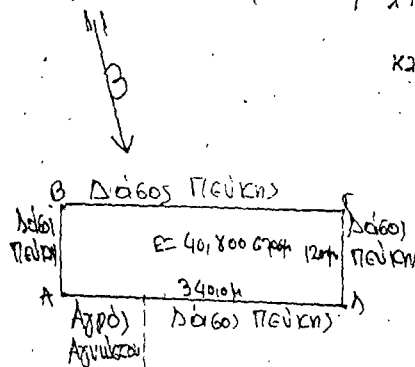 Β
Β Δάσος Πεύκης Γ
Δάσος Πεύκη
Ε= 40,800 στρεμ
120μ
Δάσος Πεύκης
340,0μ
Α Δ
Αγρός Αγνώστου
Δάσος Πεύκης